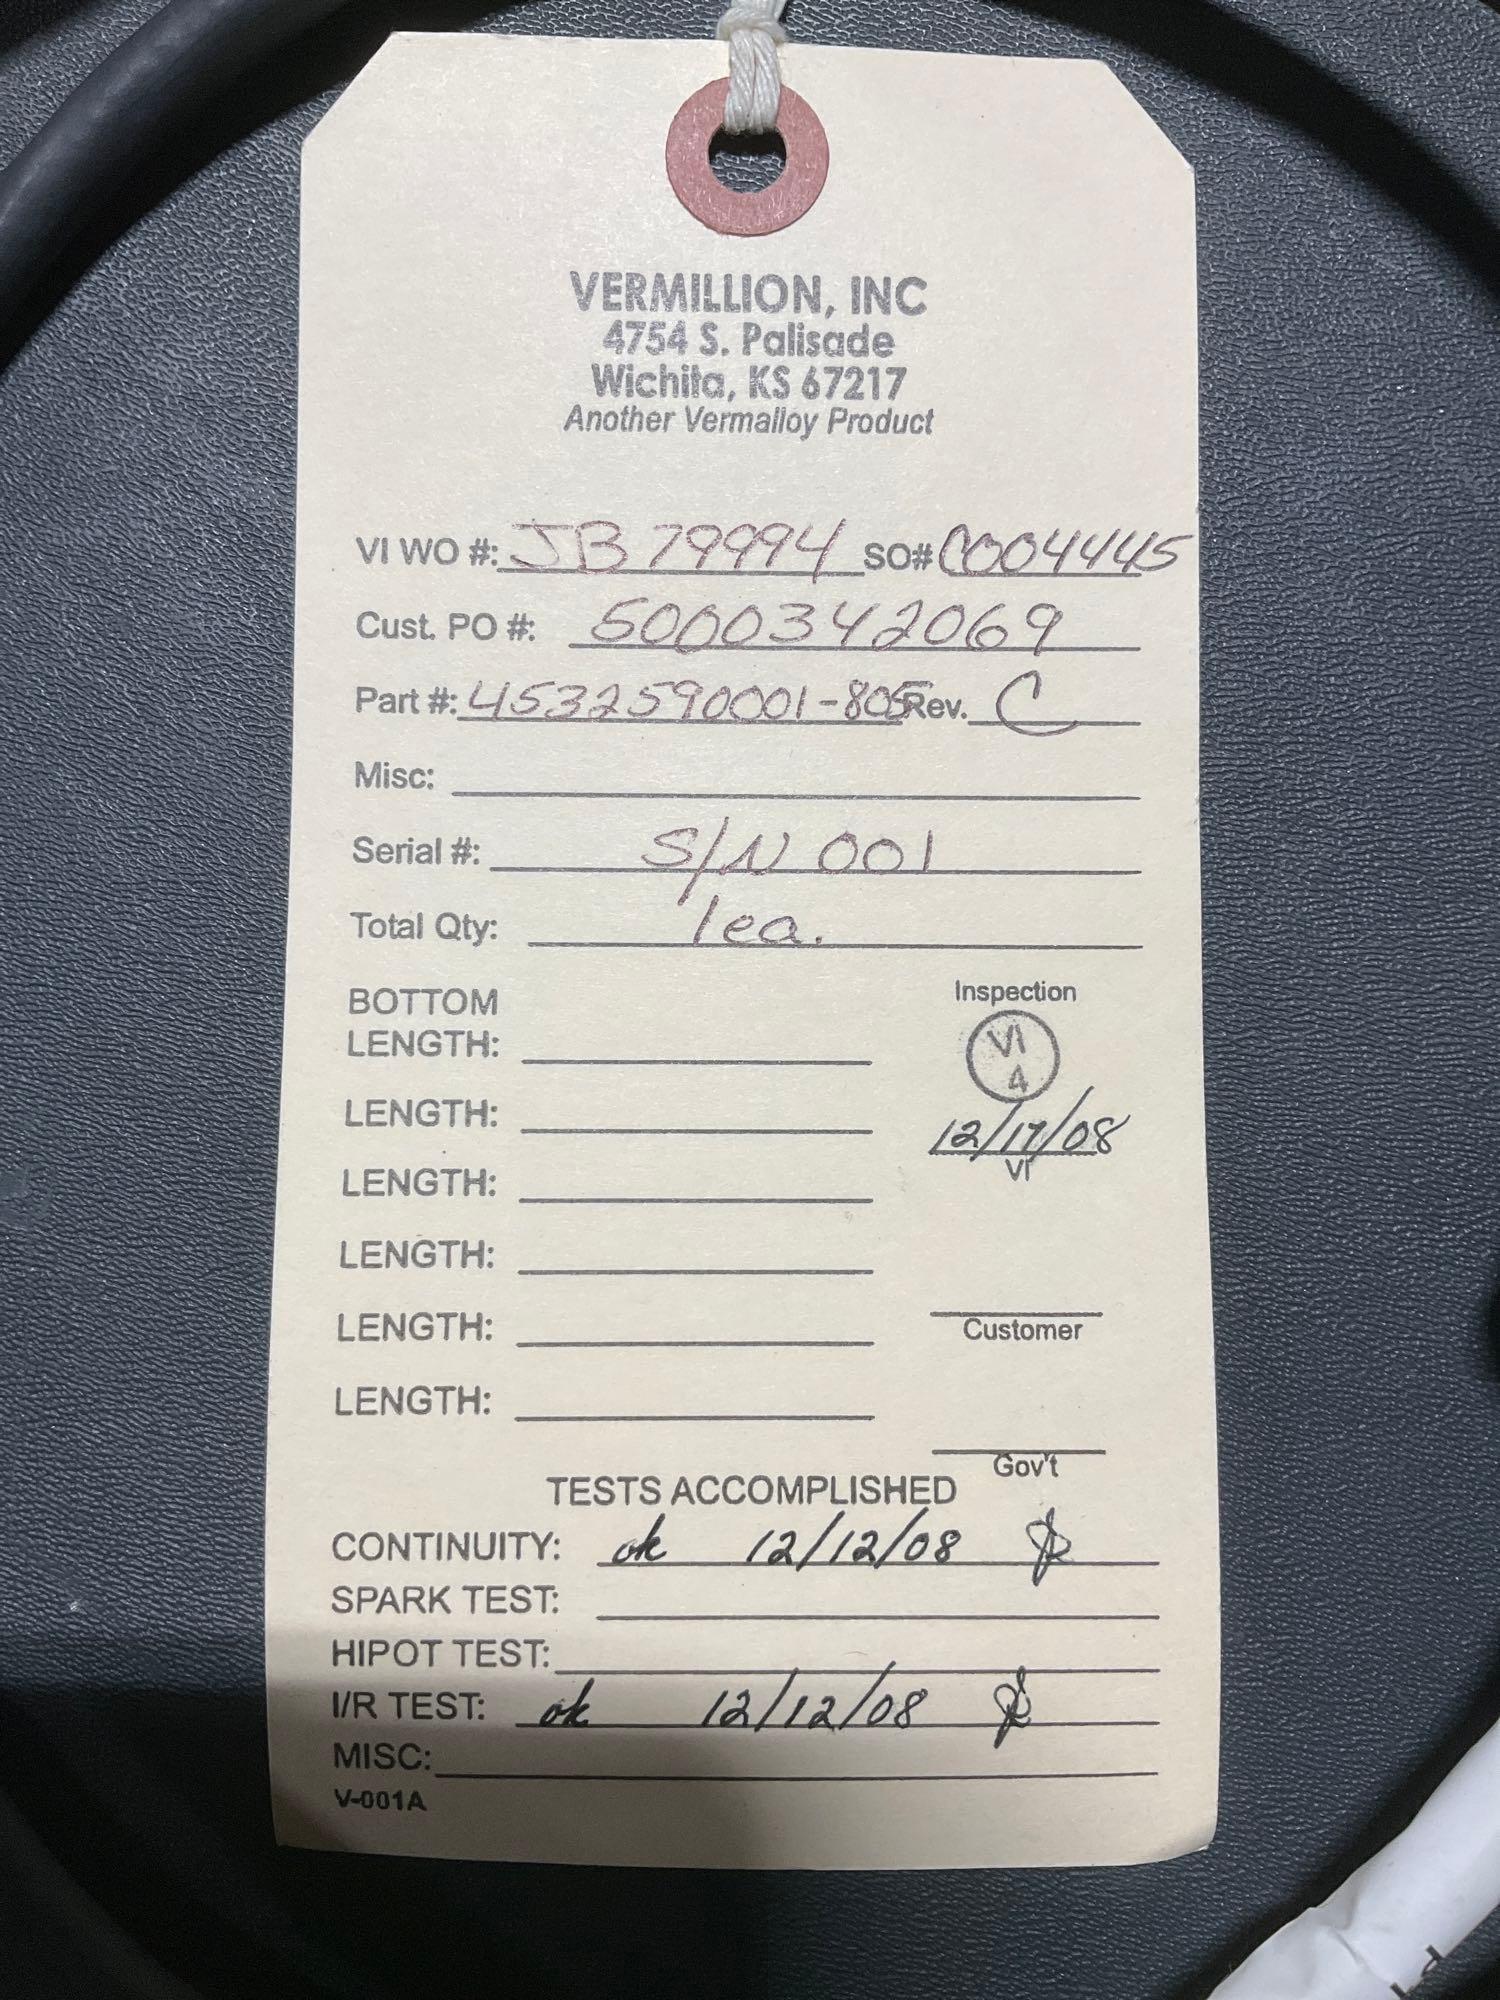 VERMILLION, INC
4754 S. Palisade
Wichita, KS 67217
Another Vermalloy Product
VI WO #: JB 79994 SO# C004445
Cust. PO #: 5000342069
Part #: 4532590001-805 Rev. C
Misc:
Serial #: S/N 001
Total Qty: 1ea.
BOTTOM
LENGTH:
Inspection
VI
4
12/17/08
VI
LENGTH:
LENGTH:
LENGTH:
LENGTH:
Customer
LENGTH:
Gov't
TESTS ACCOMPLISHED
CONTINUITY: ok 12/12/08
SPARK TEST:
HIPOT TEST:
I/R TEST: ok 12/12/08
MISC:
V-001A